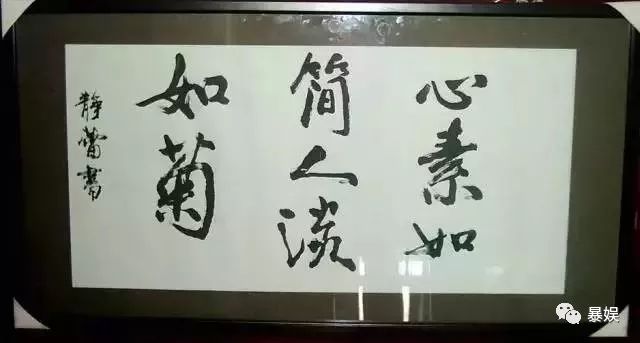 心素如
简人淡
如菊
静蕾书
暴娱